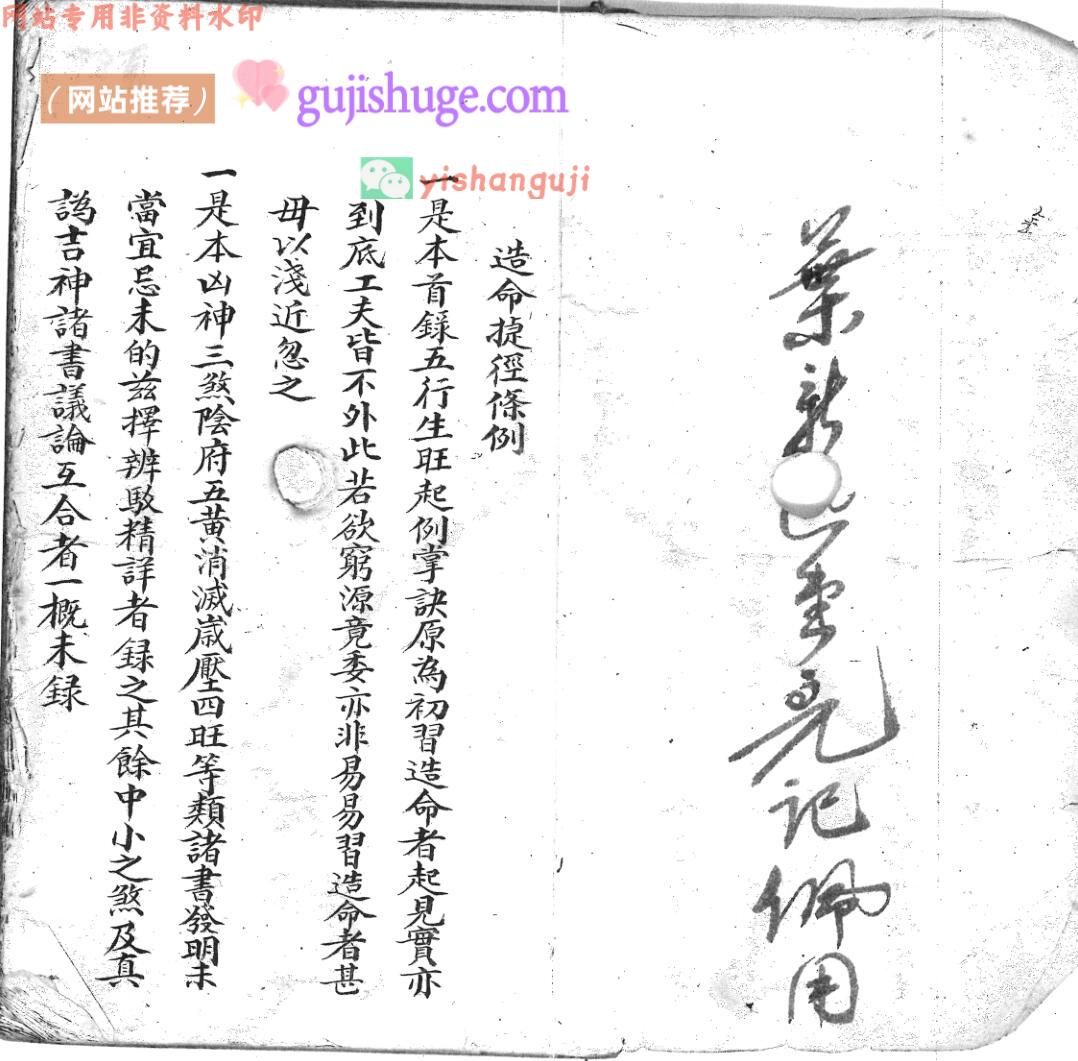 网站专用非资料水印
（网站推荐）
gujishuge.com
yishanguji
葉
堂亮記佩用
造命捷徑條例
一是本首錄五行生旺起例掌訣原為初習造命者起見實亦
到底工夫皆不外此若欲窮源竟委亦非易易習造命者甚
毋以淺近忽之
一是本凶神三煞陰府五黃消滅歲壓四旺等類諸書發明未
當宜忌未的兹擇辨駁精詳者録之其餘中小之煞及真
譌吉神諸書議論互合者一概未録